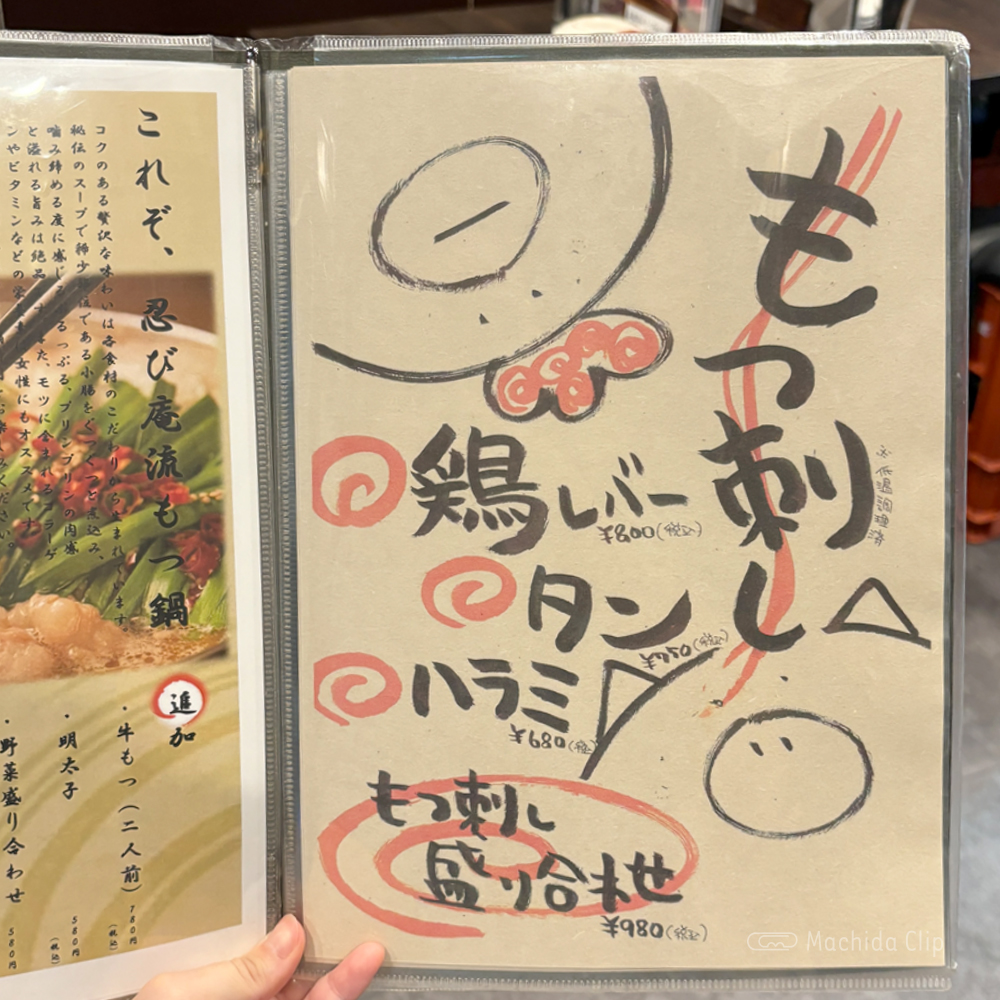 もつ刺し
※低温調理済
鶏レバー
¥800(税込)
タン
ハラミ
¥680(税込)
もつ刺し
盛り合わせ
¥980(税込)
これぞ、忍び庵流もつ鍋
コクのある贅沢な味わいは各食材のこだわりから生まれています
秘伝のスープで稀少部位である小腸をぐつぐつと煮込み、
噛み締める度に感じる
るっぷる、プリンプリンの肉感
と溢れる旨みは絶品
た、モツに含まれるコラーゲ
ンやビタミンなどの栄
女性にもオススメです。
追加
・牛もつ(二人前)
780円
(税込)
・明太子
580円
(税込)
・野菜盛り合わせ
580円
Machida Clip